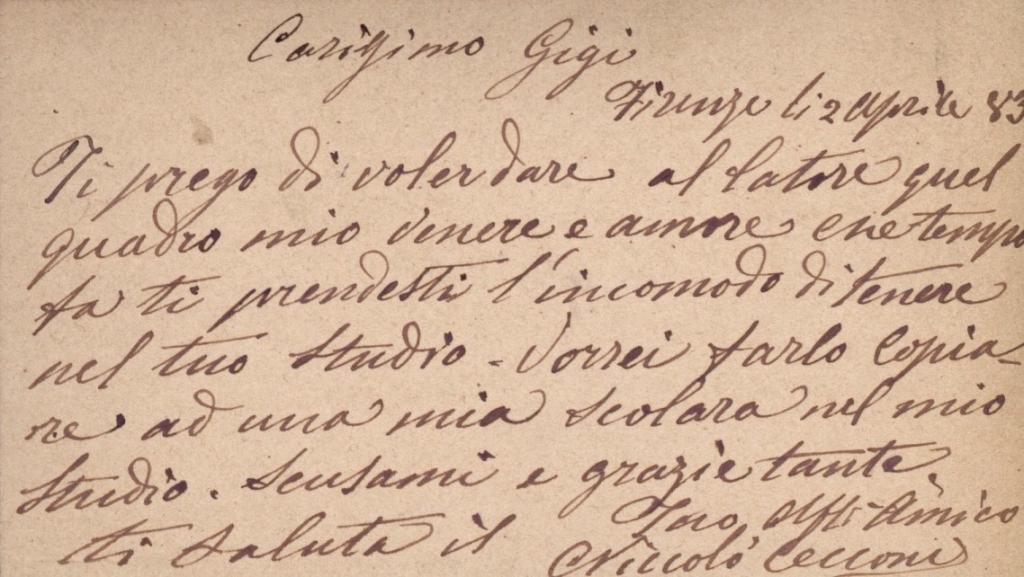 Carissimo Gigi
Firenze li 2 aprile 83
Ti prego di voler dare al latore quel
quadro mio Venere e amore che tempo
fa ti prendesti l'incomodo di tenere
nel tuo studio - Vorrei farlo copia-
re ad una mia scolara nel mio
studio. Scusami e grazie tante.
ti saluta il Amico
Niccolò Cecconi